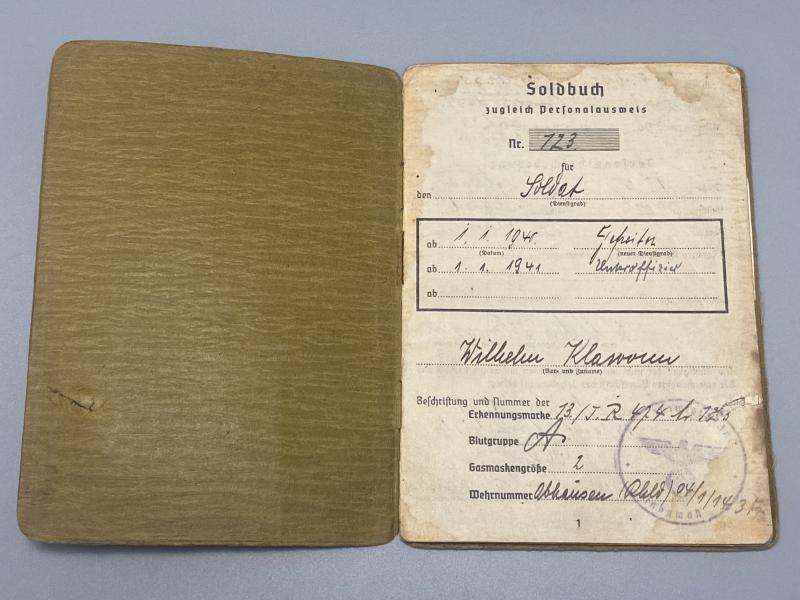 Soldbuch
zugleich Personalausweis
Nr. 123
für
den Soldat
(Dienstgrad)
ab 1. 1. 1940 Gefreiter
(Datum) (neuer Dienstgrad)
ab 1. 1. 1941 Unteroffizier
ab
Wilhelm Klawonn
(Vor- und Zuname)
Beschriftung und Nummer der
Erkennungsmarke 13./J. R 474 Nr. 123
Blutgruppe A
Gasmaskengröße 2
Wehrnummer (Rhld) 04/1/14/3
1